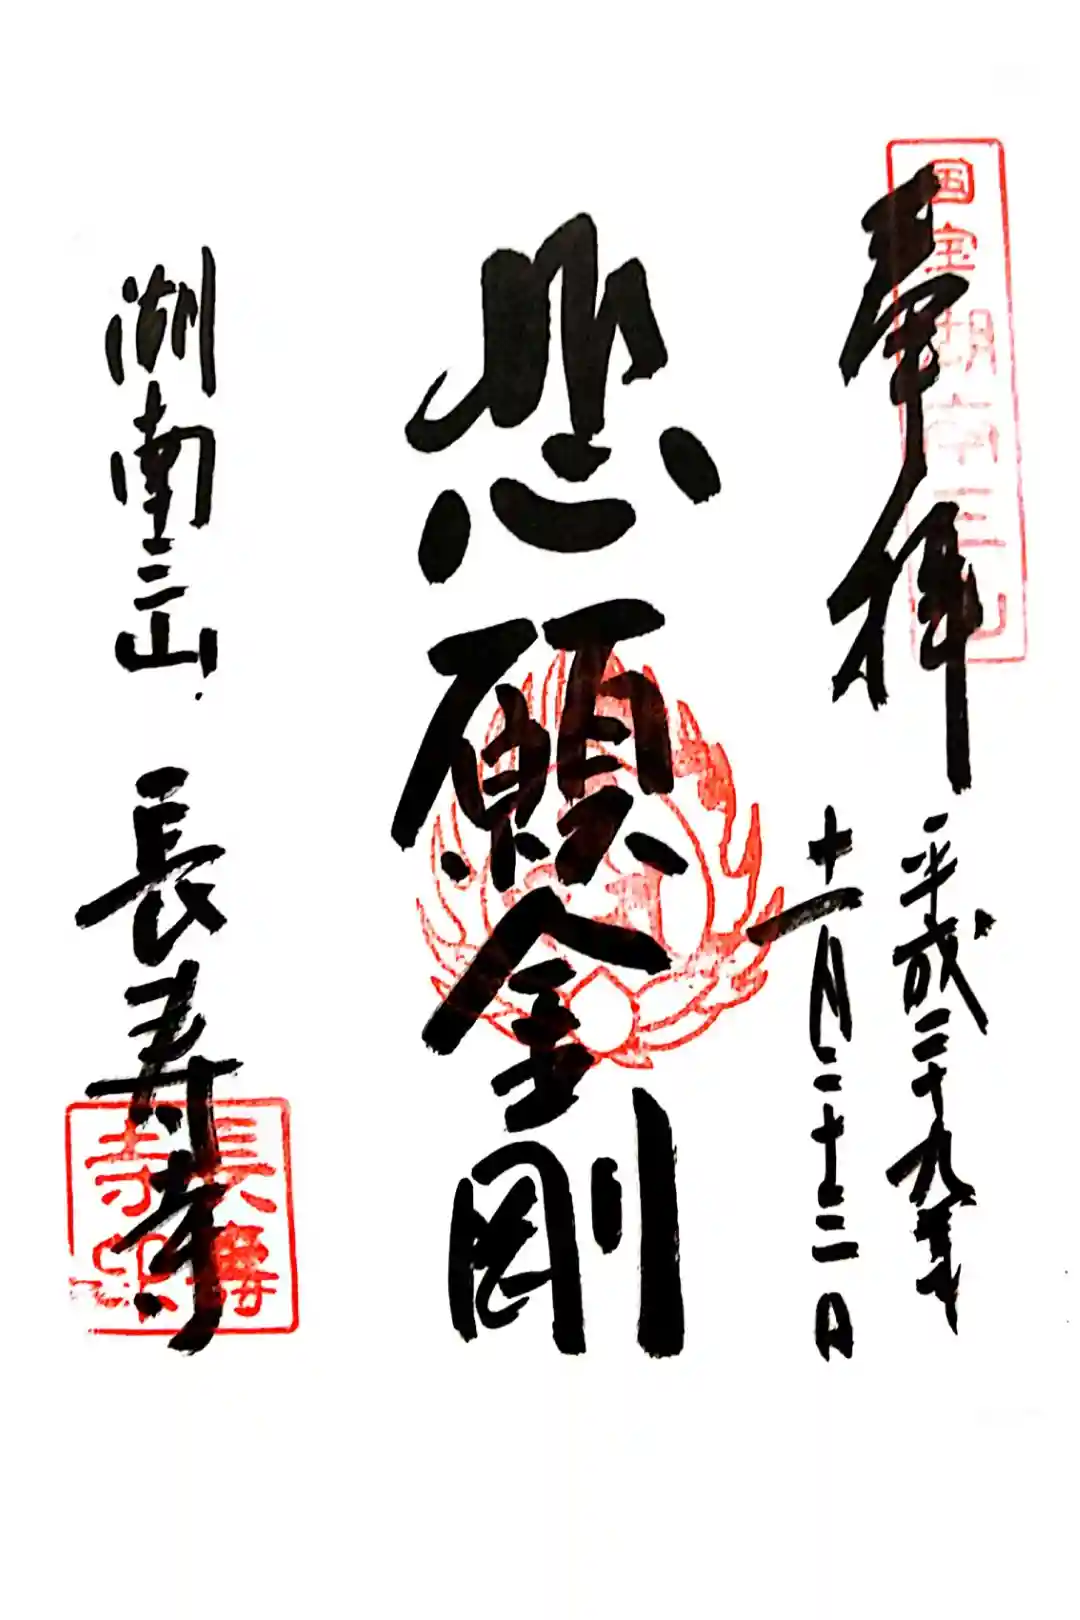 奉拝
国宝湖南三山
平成二十九年
十一月二十三日
悲願金剛
湖南三山
長寿寺
長壽
寺印